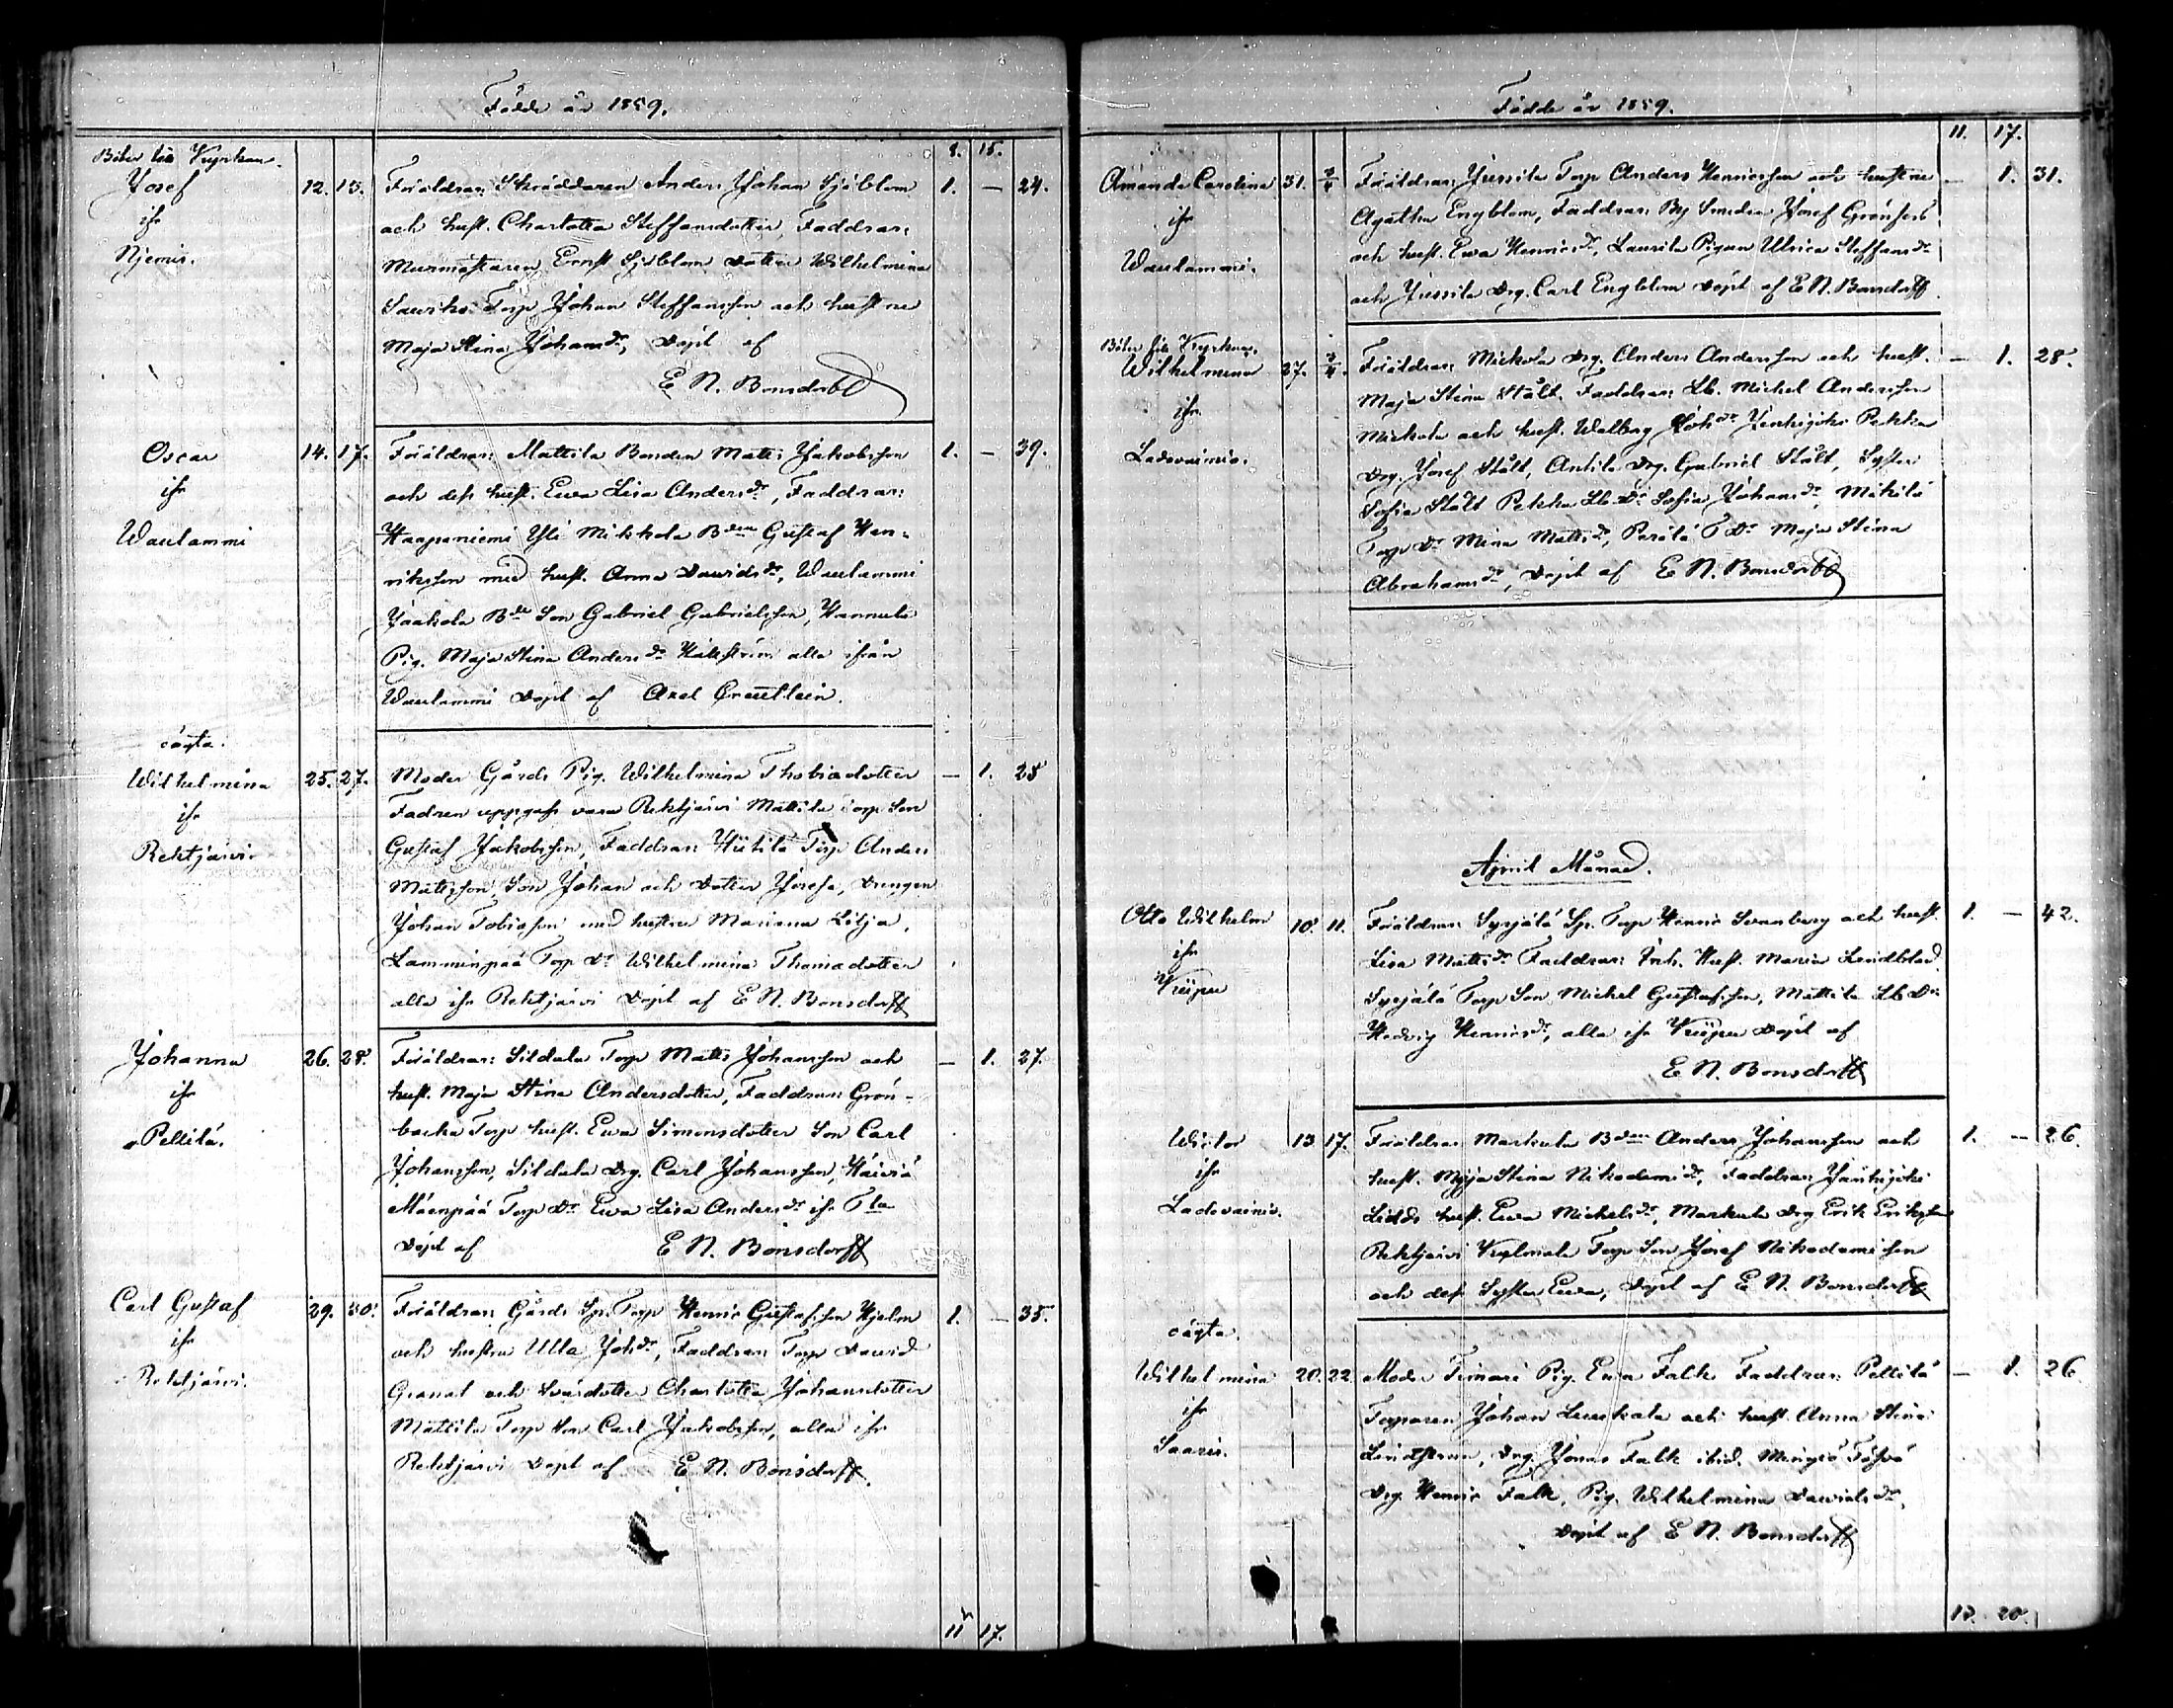 Födde år 1859.
8. 15.
Böter till Kyrkan.
Josef 12. 13. Föräldrar: Skräddaren Anders Johan Sjöblom 1. — 24.
ifr och hust. Charlotta Steffansdotter, Faddrar:
Njemis. Murmästaren Ernst Sjöblom dotter Wilhelmina
Torp Johan Steffansson och hustru
Maja Stina Johansdr, Döpt af
E N. Bonsdorff
Oscar 14. 17. Föräldrar: Mattila Bonden Matts Jakobsson 1. — 39.
ifr och dess hust. Ewa Lisa Andersdr, Faddrar:
Waulammi Haapaniemi Yli Mikkola Bden Gustaf Hen-
riksson med hust. Anna Davidsdr, Waulammi
Jaakola Bde Son Gabriel Gabrielsson, Hannula
Pig. Maja Stina Andersdr Hällström alla ifrån
Waulammi Döpt af Axel
oägta.
Wilhelmina 25. 27. Moder Gårds Pig. Wilhelmina Thobiadotter — 1. 25
ifr Fadren uppgafs vara Rehtjärvi Mattila Torp Son
Rehtjärvi. Gustaf Jakobsson, Faddrar: Hütilä Torp Anders
Mattsson, Son Johan och Dotter Josefa, Drengen
Johan Tobiasson med hustru Mariana Lilja,
Lamminpää Torp Dr Wilhelmina Thomadotter
alla ifr Rehtjärvi Döpt af E N. Bonsdorff
Johanna 26. 28. Föräldrar: Sildala Torp Matts Johansson och — 1. 27.
ifr hust. Maja Stina Andersdotter, Faddrar: Grön-
Pellilä. backa Torp hust. Ewa Simonsdotter Son Carl
Johansson, Sildala Drg. Carl Johansson, Häiviä
Mäenpää Torp Dr Ewa Lisa Andersdr ifr
Döpt af E N. Bonsdorff
Carl Gustaf 29. 30. Föräldrar: Gårds Sp. Torp Henric Gustafsson Hjelm 1. — 35.
ifr och hustru Ulla Johdr, Faddrar: Torp David
Rehtjärvi. Granat och Svärdotter Charlotta Johansdotter
Mattila Torp Son Carl Jakobsson, alla ifr
Rehtjärvi Döpt af E N. Bonsdorff.
11 17.
Födde år 1859.
11. 17.
Amanda Carolina 31. 3/4 Föräldrar: Jussila Torp Anders Henricsson och hustru — 1. 31.
ifr Agatha Engblom, Faddrar: By Smeden Josef Grönfors
Waulammi. och hust. Ewa Henricsdr, Laurila Pigan Ulrica Steffansdr
och Jussila Drg. Carl Engblom Döpt af E N. Bonsdorff.
Böter till Kyrkan.
Wilhelmina 27. 3/4. Föräldrar: Mickola Drg. Anders Andersson och hust. — 1. 28.
ifr Maja Stina Stält. Faddrar: Lb. Michel Andersson
Ladovainio. Mickola och hust. Walborg Johdr Pekka
Drg. Josef Stält, Antila Drg. Gabriel Stält, Syster
Sofia Stält Pekka Lb. Dr Sofia Johansdr, Mikilä
Torp Dr Mina Mattsdr, Perälä T Dr Maja Stina
Abrahamsdr, Döpt af E N. Bonsdorff
April Månad.
Otto Wilhelm 10. 11. Föräldrar: Syrjälä Sp. Torp Henric Svanberg och hust. 1. — 42.
ifr Lisa Mattsdr Faddrar: Inh. Hust. Maria Lindblad.
Kuipu Syrjälä Torp Son Michel Gustafsson, Mattila Lb Dr
Hedvig Henricsdr, alla ifr Kuipu Döpt af
E N. Bonsdorff
Wictor 13 17. Föräldrar: Markula Bden Anders Johansson och 1. — 26.
ifr hust. Maja Stina Nikodemidr, Faddrar: Jänhijoki
Ladovainio. hust. Ewa Michelsdr, Markula Drg Erik Eriksson
Rehtjärvi Torp Son Josef Nikodemisson
och dess Syster Ewa, Döpt af E N. Bonsdorff
oägta.
Wilhelmina 20. 22. Moder Timari Pig. Ewa Falk Faddrar: Pellilä — 1. 26
ifr Torparen Johan Leuskala och hust. Anna Stina
Saaris. Lindstran, Drg. Jonas Falk ibid.
Drg. Henric Falk, Pig. Wilhelmina Davidsdr,
Döpt af E N. Bonsdorff
13. 20.